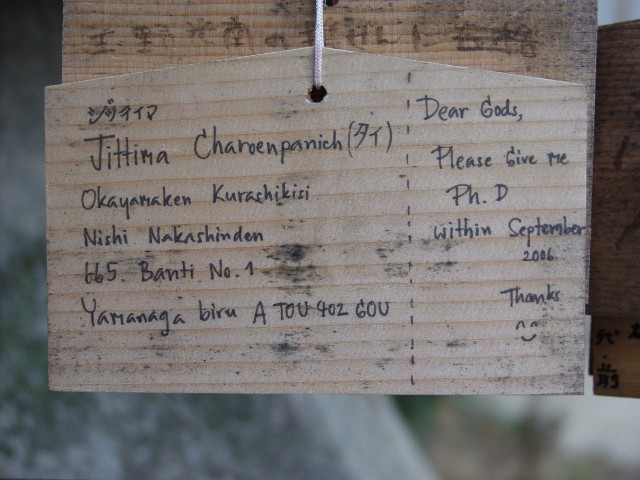 ジッティマ
Jittima Charoenpanich (タイ)
Okayamaken Kurashikisi
Nishi Nakashinden
665 Banti No.1
Yamanaga biru A TOU 402 GOU
Dear Gods,
Please Give me
Ph.D
within September
2006
Thanks